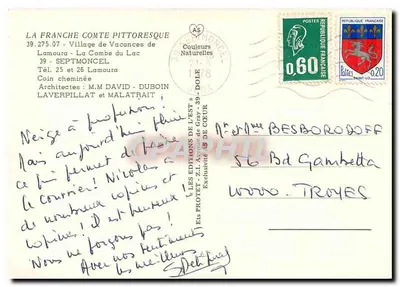 LA FRANCHE COMTE PITTORESQUE
39.275.07 - Village de Vacances de
Lamoura - La Combe du Lac
39 - SEPTMONCEL
Tél. 25 et 26 Lamoura
Coin cheminée
Architectes : M.M DAVID - DUBOIN
LAVERPILLAT et MALATRAIT
Neige à profusion!
Mais aujourd'hui pluie
ce qui permet de faire
le courrier! Nicolas a
de nombreux copains et
copines! il est heureux!
Nous ne forçons pas!
Avec nos sentiments
les meilleurs
AS
Couleurs
Naturelles
"LES EDITIONS DE L'EST"
Ets PROTET - Z.I. Avenue de Gray - 39 - DOLE
Exclusivité AS DE CŒUR
POSTES
FRANCE
0,60
REPUBLIQUE FRANÇAISE
Postes
0,20
SAINT-LO
Mr et Mme BESBORODOFF
56 Bd Gambetta
10000 - TROYES